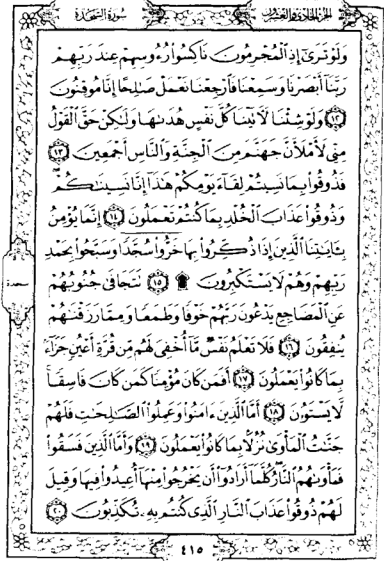 الجزء الحادي والعشرون
سورة السجدة
وَلَوْ تَرَىٰٓ إِذِ ٱلْمُجْرِمُونَ نَاكِسُوا۟ رُءُوسِهِمْ عِندَ رَبِّهِمْ
رَبَّنَآ أَبْصَرْنَا وَسَمِعْنَا فَٱرْجِعْنَا نَعْمَلْ صَٰلِحًا إِنَّا مُوقِنُونَ
١٢ وَلَوْ شِئْنَا لَءَاتَيْنَا كُلَّ نَفْسٍ هُدَىٰهَا وَلَٰكِنْ حَقَّ ٱلْقَوْلُ
مِنِّى لَأَمْلَأَنَّ جَهَنَّمَ مِنَ ٱلْجِنَّةِ وَٱلنَّاسِ أَجْمَعِينَ ١٣
فَذُوقُوا۟ بِمَا نَسِيتُمْ لِقَآءَ يَوْمِكُمْ هَٰذَآ إِنَّا نَسِينَٰكُمْ
وَذُوقُوا۟ عَذَابَ ٱلْخُلْدِ بِمَا كُنتُمْ تَعْمَلُونَ ١٤ إِنَّمَا يُؤْمِنُ
بِـَٔايَٰتِنَا ٱلَّذِينَ إِذَا ذُكِّرُوا۟ بِهَا خَرُّوا۟ سُجَّدًا وَسَبَّحُوا۟ بِحَمْدِ
رَبِّهِمْ وَهُمْ لَا يَسْتَكْبِرُونَ ۩ ١٥ تَتَجَافَىٰ جُنُوبُهُمْ
سجدة
عَنِ ٱلْمَضَاجِعِ يَدْعُونَ رَبَّهُمْ خَوْفًا وَطَمَعًا وَمِمَّا رَزَقْنَٰهُمْ
يُنفِقُونَ ١٦ فَلَا تَعْلَمُ نَفْسٌ مَّآ أُخْفِىَ لَهُم مِّن قُرَّةِ أَعْيُنٍ جَزَآءً
بِمَا كَانُوا۟ يَعْمَلُونَ ١٧ أَفَمَن كَانَ مُؤْمِنًا كَمَن كَانَ فَاسِقًا
لَّا يَسْتَوُۥنَ ١٨ أَمَّا ٱلَّذِينَ ءَامَنُوا۟ وَعَمِلُوا۟ ٱلصَّٰلِحَٰتِ فَلَهُمْ
جَنَّٰتُ ٱلْمَأْوَىٰ نُزُلًۢا بِمَا كَانُوا۟ يَعْمَلُونَ ١٩ وَأَمَّا ٱلَّذِينَ فَسَقُوا۟
فَمَأْوَىٰهُمُ ٱلنَّارُ كُلَّمَآ أَرَادُوٓا۟ أَن يَخْرُجُوا۟ مِنْهَآ أُعِيدُوا۟ فِيهَا وَقِيلَ
لَهُمْ ذُوقُوا۟ عَذَابَ ٱلنَّارِ ٱلَّذِى كُنتُم بِهِۦ تُكَذِّبُونَ ٢٠
٤١٥